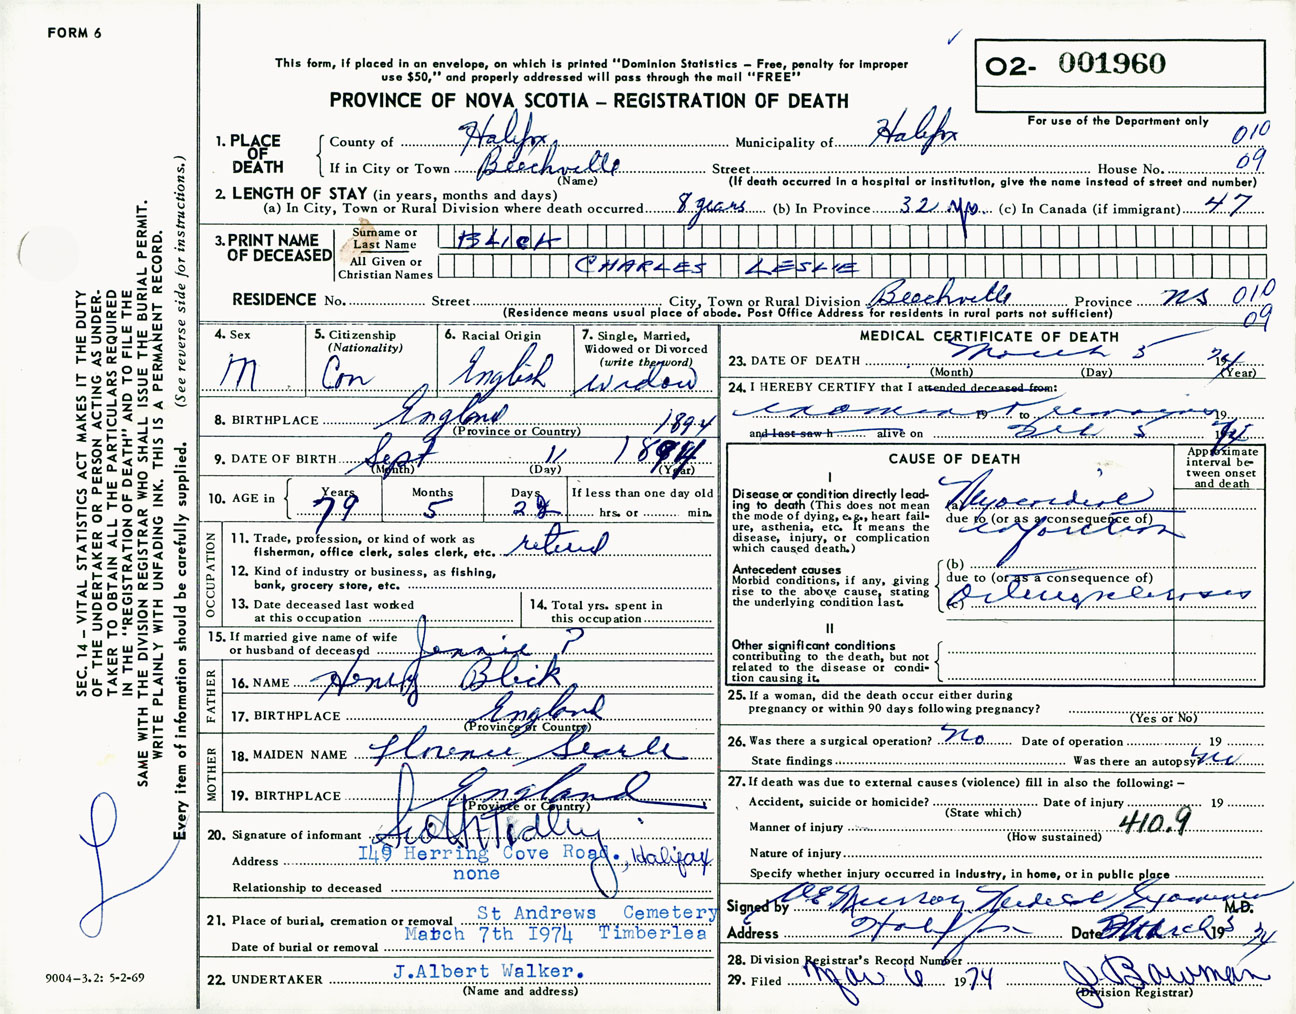 FORM 6
SEC. 14 – VITAL STATISTICS ACT MAKES IT THE DUTY
OF THE UNDERTAKER OR PERSON ACTING AS UNDER-
TAKER TO OBTAIN ALL THE PARTICULARS REQUIRED
IN THE "REGISTRATION OF DEATH" AND TO FILE THE
SAME WITH THE DIVISION REGISTRAR WHO SHALL ISSUE THE BURIAL PERMIT.
WRITE PLAINLY WITH UNFADING INK. THIS IS A PERMANENT RECORD.
Every item of information should be carefully supplied. (See reverse side for instructions.)
9004-3.2: 5-2-69
This form, if placed in an envelope, on which is printed "Dominion Statistics – Free, penalty for improper
use $50," and properly addressed will pass through the mail "FREE"
PROVINCE OF NOVA SCOTIA – REGISTRATION OF DEATH
02- 001960
For use of the Department only
1. PLACE OF DEATH
County of Halifax Municipality of Halifax 010
If in City or Town Beechville Street House No. 09
(Name) (If death occurred in a hospital or institution, give the name instead of street and number)
2. LENGTH OF STAY (in years, months and days)
(a) In City, Town or Rural Division where death occurred 8 years (b) In Province 32 yrs. (c) In Canada (if immigrant) 47
3. PRINT NAME OF DECEASED
Surname or Last Name BLICK
All Given or Christian Names CHARLES LESLIE
RESIDENCE No. Street City, Town or Rural Division Beechville Province NS 010
(Residence means usual place of abode. Post Office Address for residents in rural parts not sufficient) 09
4. Sex M
5. Citizenship (Nationality) Can
6. Racial Origin English
7. Single, Married, Widowed or Divorced (write the word) widow
8. BIRTHPLACE England 1894
(Province or Country)
9. DATE OF BIRTH Sept 11 1894
(Month) (Day) (Year)
10. AGE in Years 79 Months 5 Days If less than one day old
hrs. or min.
OCCUPATION
11. Trade, profession, or kind of work as retired
fisherman, office clerk, sales clerk, etc.
12. Kind of industry or business, as fishing,
bank, grocery store, etc.
13. Date deceased last worked at this occupation
14. Total yrs. spent in this occupation
15. If married give name of wife or husband of deceased Jennie ?
FATHER
16. NAME Henry Blick
17. BIRTHPLACE England
(Province or Country)
MOTHER
18. MAIDEN NAME Florence Searle
19. BIRTHPLACE England
(Province or Country)
20. Signature of informant
Address 149 Herring Cove Road., Halifax
none
Relationship to deceased
21. Place of burial, cremation or removal St Andrews Cemetery
Date of burial or removal March 7th 1974 Timberlea
22. UNDERTAKER J.Albert Walker.
(Name and address)
MEDICAL CERTIFICATE OF DEATH
23. DATE OF DEATH March 5 1974
(Month) (Day) (Year)
24. I HEREBY CERTIFY that I attended deceased from:
19 to 19
and last saw h alive on 5 1974
CAUSE OF DEATH
Approximate interval between onset and death
I
Disease or condition directly lead-
ing to death (This does not mean
the mode of dying, e.g., heart fail-
ure, asthenia, etc. It means the
disease, injury, or complication
which caused death.)
(a) Myocardial
due to (or as a consequence of)
infarction
Antecedent causes
Morbid conditions, if any, giving
rise to the above cause, stating
the underlying condition last.
(b)
due to (or as a consequence of)
(c) Arteriosclerosis
II
Other significant conditions
contributing to the death, but not
related to the disease or condi-
tion causing it.
25. If a woman, did the death occur either during
pregnancy or within 90 days following pregnancy?
(Yes or No)
26. Was there a surgical operation? No Date of operation 19
State findings Was there an autopsy No
27. If death was due to external causes (violence) fill in also the following: –
Accident, suicide or homicide? Date of injury 19
(State which)
Manner of injury 410.9
(How sustained)
Nature of injury
Specify whether injury occurred in Industry, in home, or in public place
Signed by Murray Medical Examiner M.D.
Address Halifax Date March 5 1974
28. Division Registrar's Record Number
29. Filed Mar 6 1974 J. Bowman
(Division Registrar)